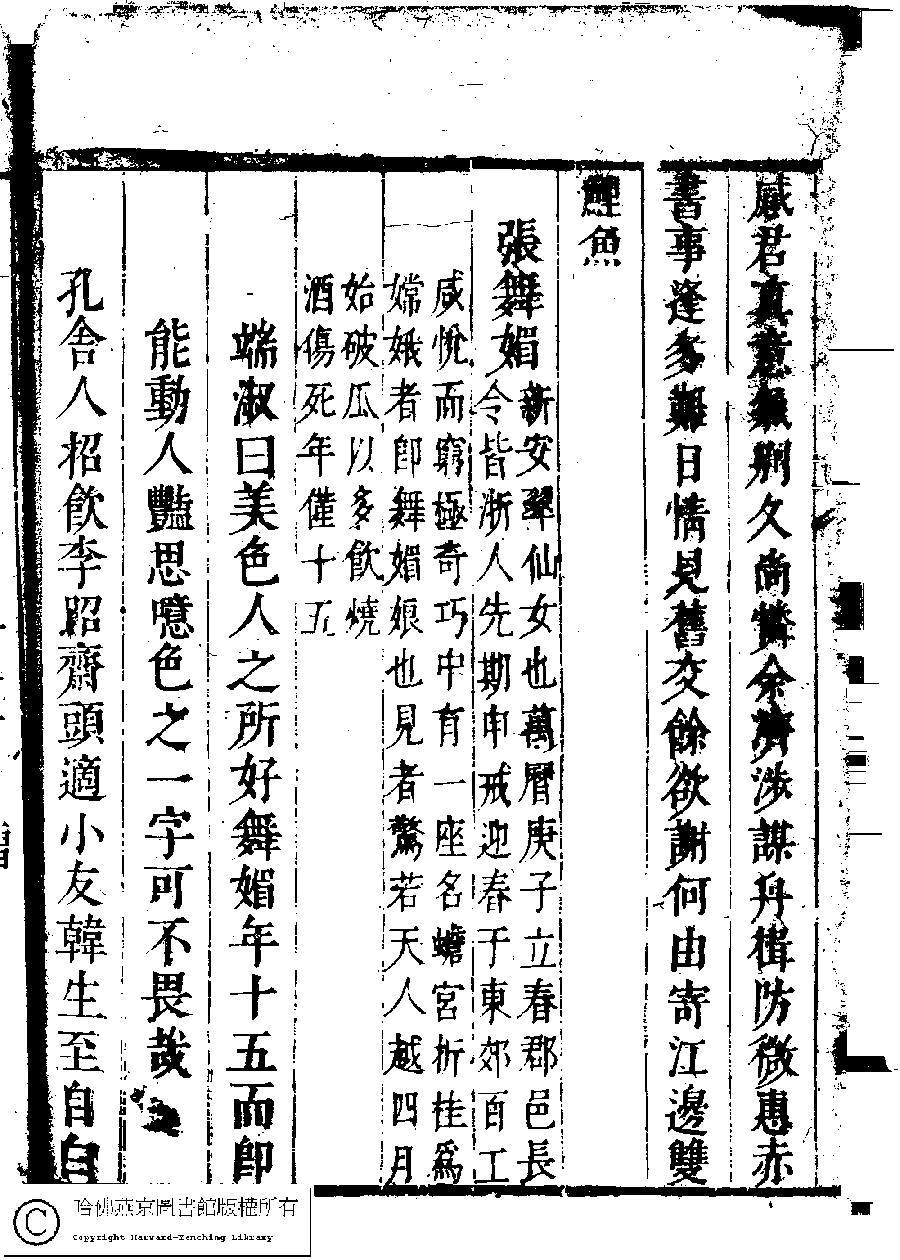 感君真意別久尚贊余濟涉謀舟楫防微惠赤
書事逢多難日情見舊交餘欲謝何由寄江邊雙
鯉魚
張舞媚
新安翠仙女也萬曆庚子立春郡邑長
令皆浙人先期申戒迎春于東郊百工
咸悅而窮極奇巧中有一座名蟾宮折桂為
嫦娥者卽舞媚娘也見者驚若天人越四月
始破瓜以多飲燒
酒傷死年僅十五
端淑曰美色人之所好舞媚年十五而卽
能動人豔思噫色之一字可不畏哉
孔舍人招飲李昭齋頭適小友韓生至自白
哈佛燕京圖書館版權所有
Copyright Harvard-Yenching Library